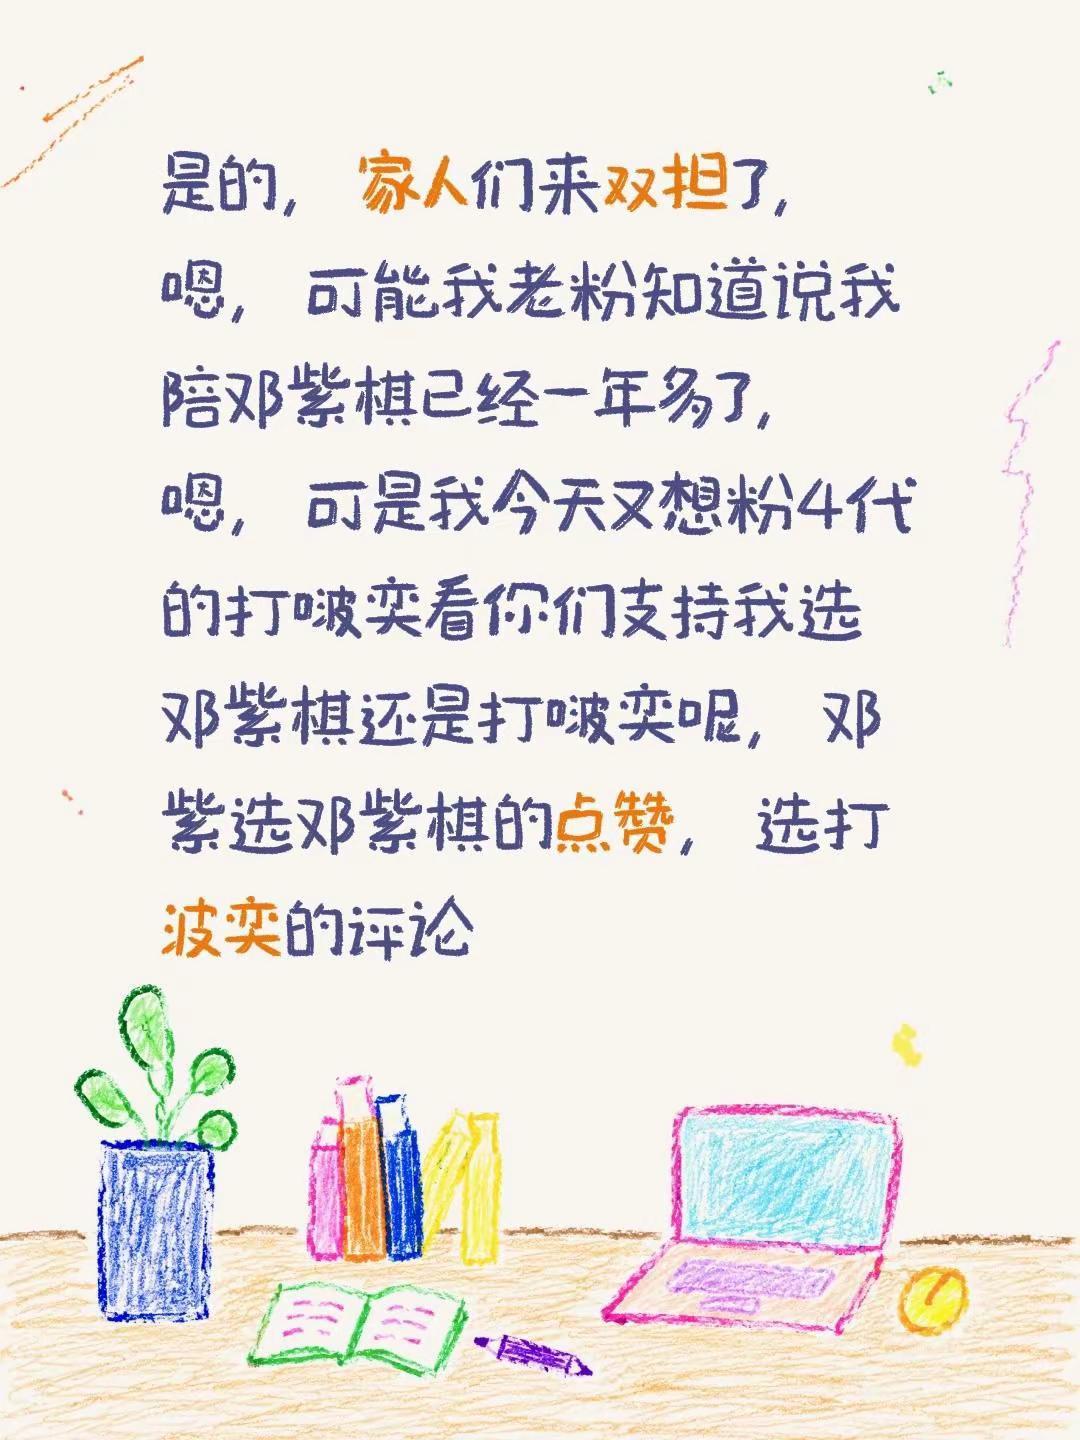 是的，家人们来双担了，
嗯，可能我老粉知道说我
陪邓紫棋已经一年多了，
嗯，可是我今天又想粉4代
的打啵奕看你们支持我选
邓紫棋还是打啵奕呢，邓
紫选邓紫棋的点赞，选打
波奕的评论